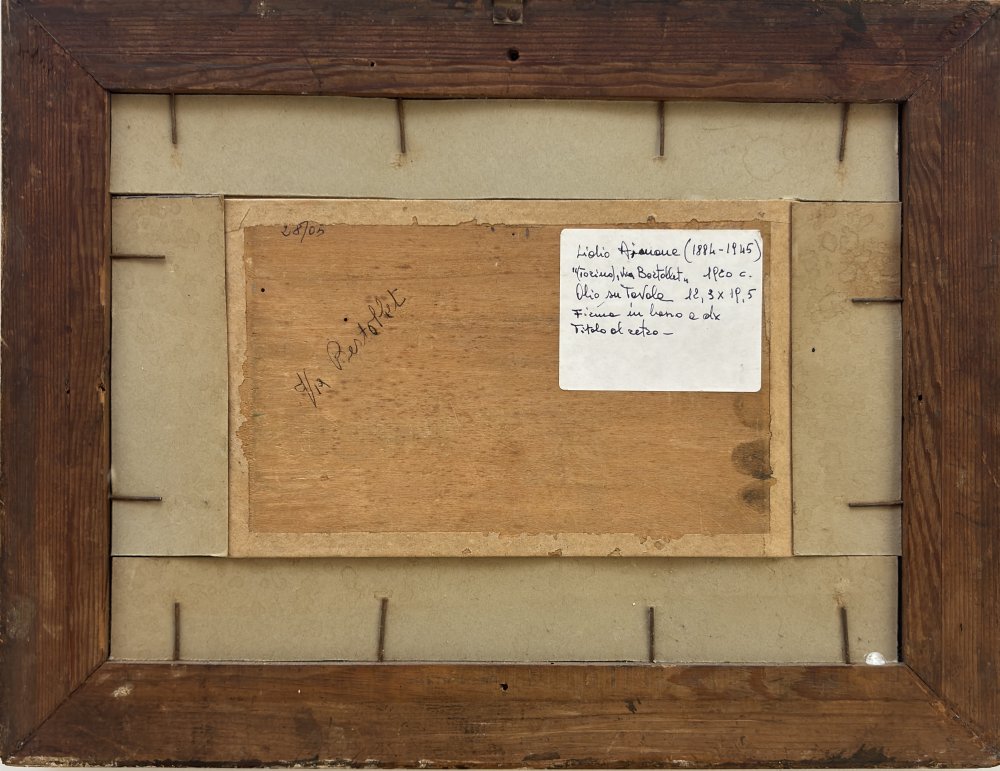 28/05
Via Bertollet
Lidio Ajmone (1884-1945)
"(Torino), Via Bertollet„ 1920 c.
Olio su Tavola 12,3 x 19,5
Firma in basso a dx
Titolo al retro -